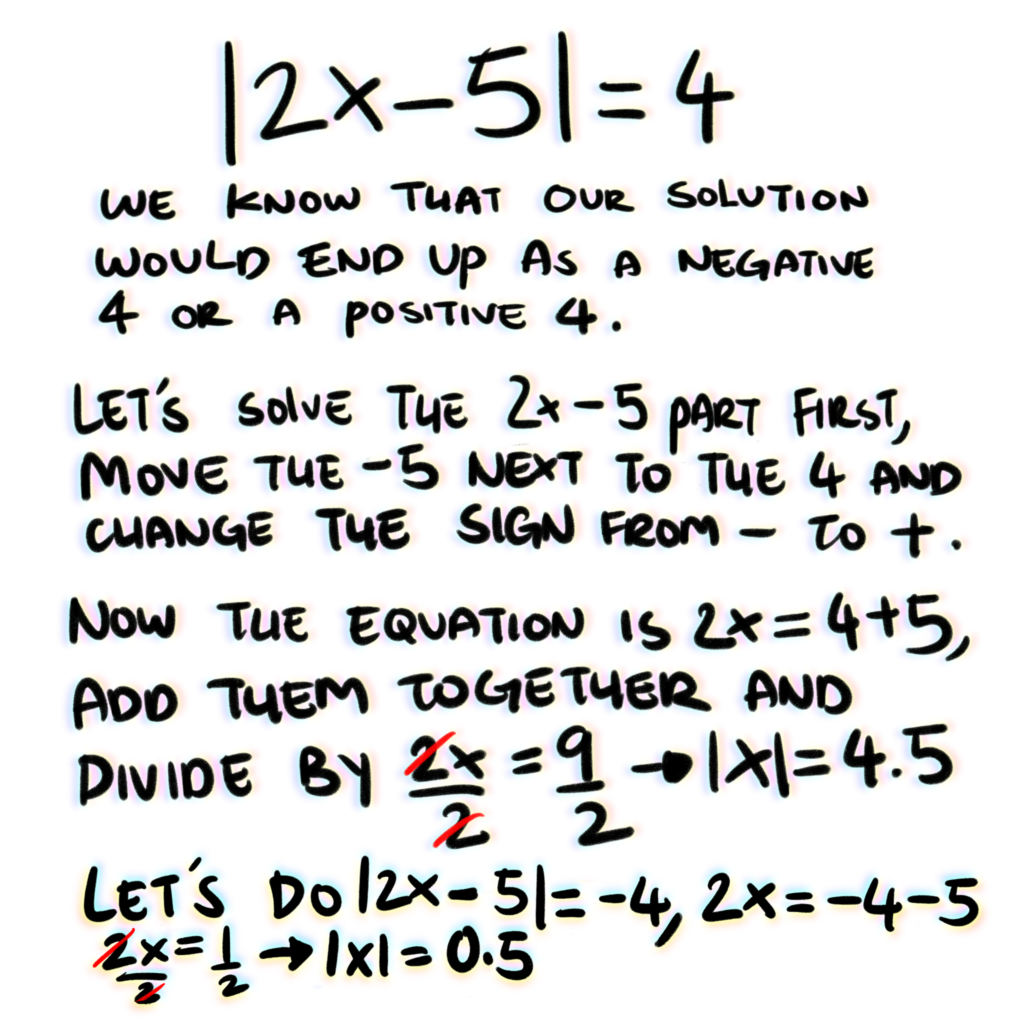 |2x-5|=4
WE KNOW THAT OUR SOLUTION
WOULD END UP AS A NEGATIVE
4 OR A POSITIVE 4.
LET'S SOLVE THE 2x-5 PART FIRST,
MOVE THE -5 NEXT TO THE 4 AND
CHANGE THE SIGN FROM - TO +.
NOW THE EQUATION IS 2x=4+5,
ADD THEM TOGETHER AND
DIVIDE BY 2x/2 = 9/2 → |x|=4.5
LET'S DO |2x-5|=-4, 2x=-4-5
2x/2 = 1/2 → |x|=0.5